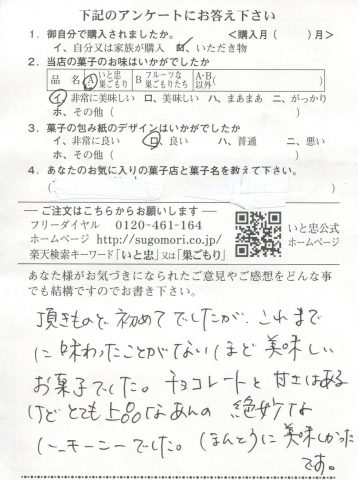 下記のアンケートにお答え下さい
1. 御自分で購入されましたか。 <購入月（ ）月>
イ、自分又は家族が購入 ロ、いただき物
2. 当店の菓子のお味はいかがでしたか
品 名 A いと忠巣ごもり B フルーツな巣ごもりたち A・B以外（ ）
イ、非常に美味しい ロ、美味しい ハ、まあまあ ニ、がっかり
ホ、その他（ ）
3. 菓子の包み紙のデザインはいかがでしたか
イ、非常に良い ロ、良い ハ、普通 ニ、悪い
ホ、その他（ ）
4. あなたのお気に入りの菓子店と菓子名を教えて下さい。
（
― ご注文はこちらからお願いします ―
フリーダイヤル 0120-461-164
ホームページ http://sugomori.co.jp/
楽天検索キーワード「いと忠」又は「巣ごもり」
いと忠公式
ホームページ
あなた様がお気づきになられたご意見やご感想をどんな事
でも結構ですのでお書き下さい。
頂きもので初めてでしたが、これまで
に味わったことがないほど美味しい
お菓子でした。チョコレートと甘さはある
けどとても上品なあんの絶妙な
ハーモニーでした。ほんとうに美味しかった
です。